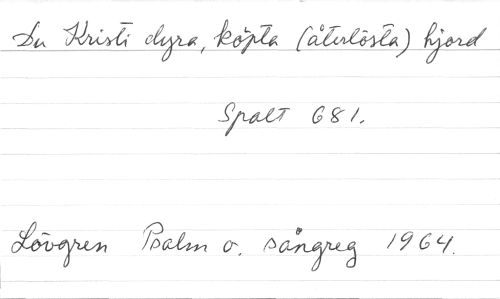 Du Kristi dyra, köpta (återlösta) hjord
Spalt 681.
Lövgren Psalm o. sångreg 1964.